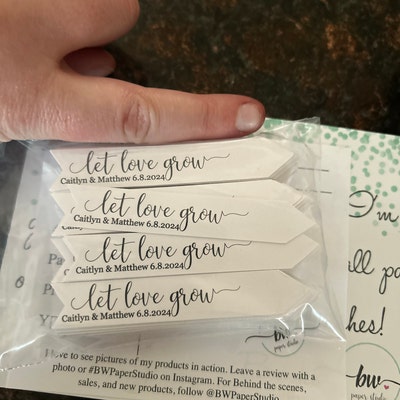 let love grow
Caitlyn & Matthew 6.8.2024
let love grow
Caitlyn & Matthew 6.8.2024
let love grow
Caitlyn & Matthew 6.8.2024
let love grow
Caitlyn & Matthew 6.8.2024
I'm
hes!
bw
paper studio
bw
paper studio
to see pictures of my products in action. Leave a review with a
photo or #BWPaperStudio on Instagram. For Behind the scenes,
sales, and new products, follow @BWPaperStudio